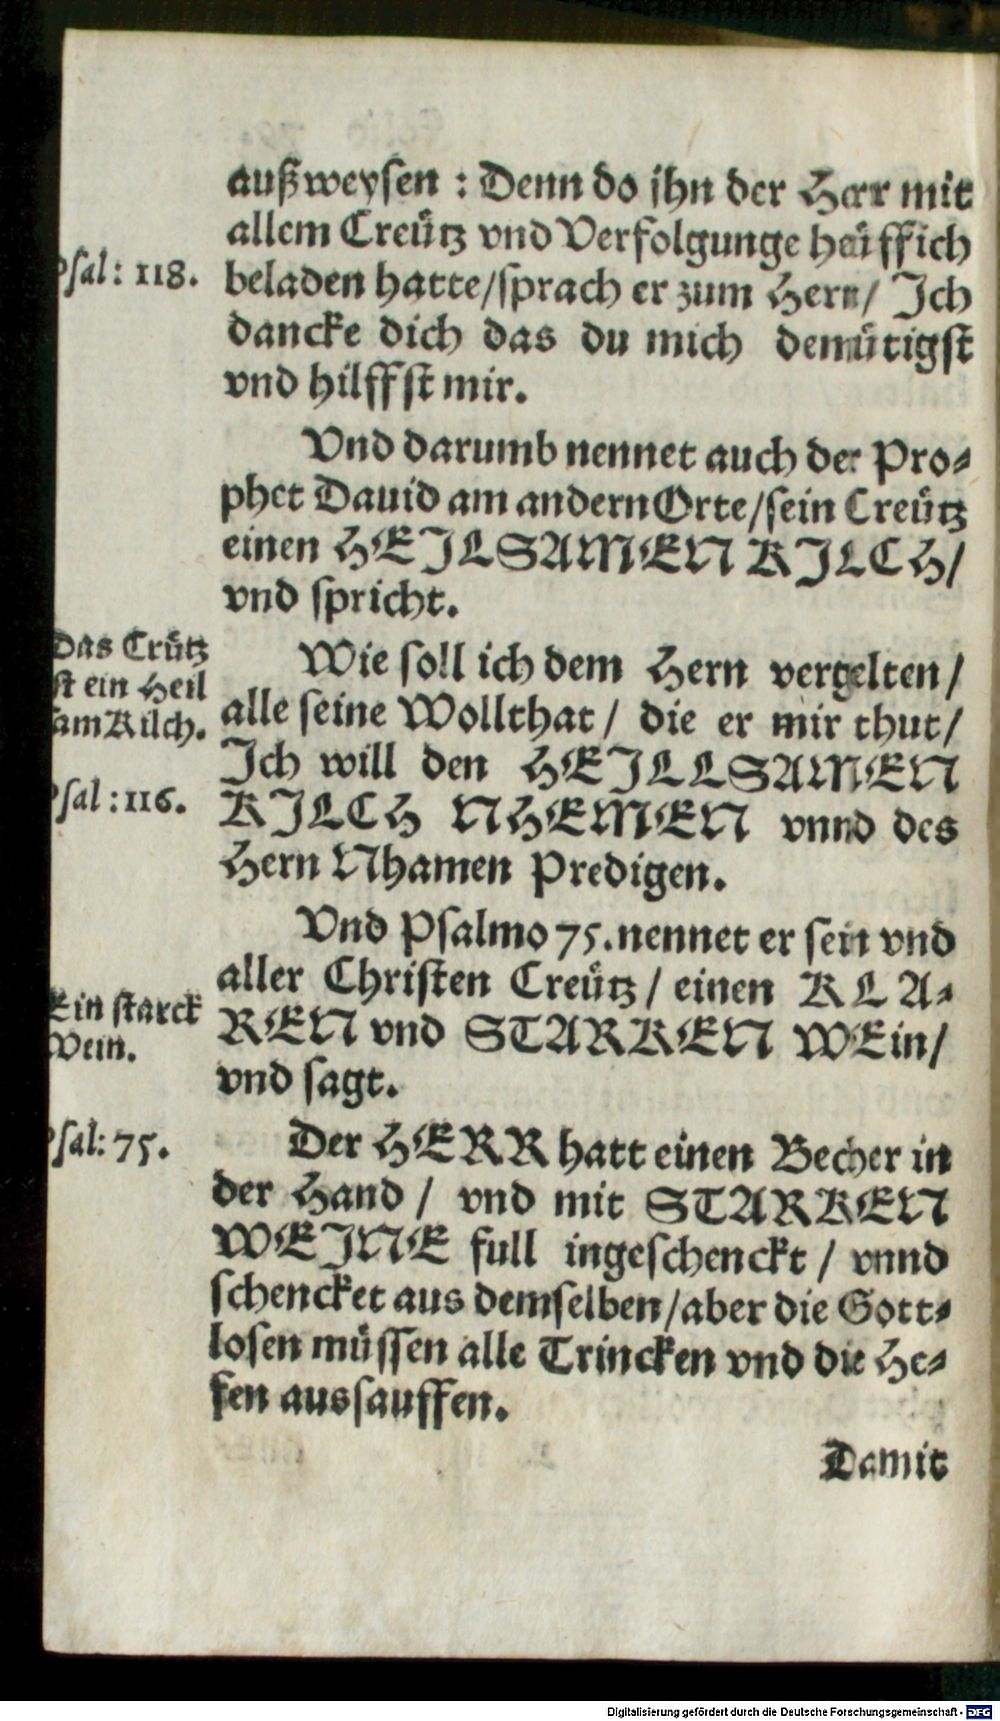 außweysen : Denn do jhn der Herr mit
allem Creütz vnd Verfolgunge haüffich
Psal: 118.
beladen hatte/sprach er zum Hern/ Jch
dancke dich das du mich demütigst
vnd hilffst mir.
Vnd darumb nennet auch der Pro-
phet Dauid am andern Orte/sein Creütz
einen HEJLSAMEN KJLCH/
vnd spricht.
Das Crütz
st ein Heil
samKilch.
Wie soll ich dem Hern vergelten/
alle seine Wollthat/ die er mir thut/
Jch will den HEJLLSAMEN
Psal :116.
KJLCH NHEMEN vnnd des
Hern Nhamen Predigen.
Vnd Psalmo 75.nennet er sein vnd
aller Christen Creütz/ einen KLA-
Ein starck
Wein.
REN vnd STARKEN WEin/
vnd sagt.
Psal: 75.
Der HERR hatt einen Becher in
der Hand/ vnd mit STARKEN
WEJNE full ingeschenckt/ vnnd
schencket aus demselben/aber die Gott-
losen müssen alle Trincken vnd die He-
fen aussauffen.
Damit
Digitalisierung gefördert durch die Deutsche Forschungsgemeinschaft - DFG